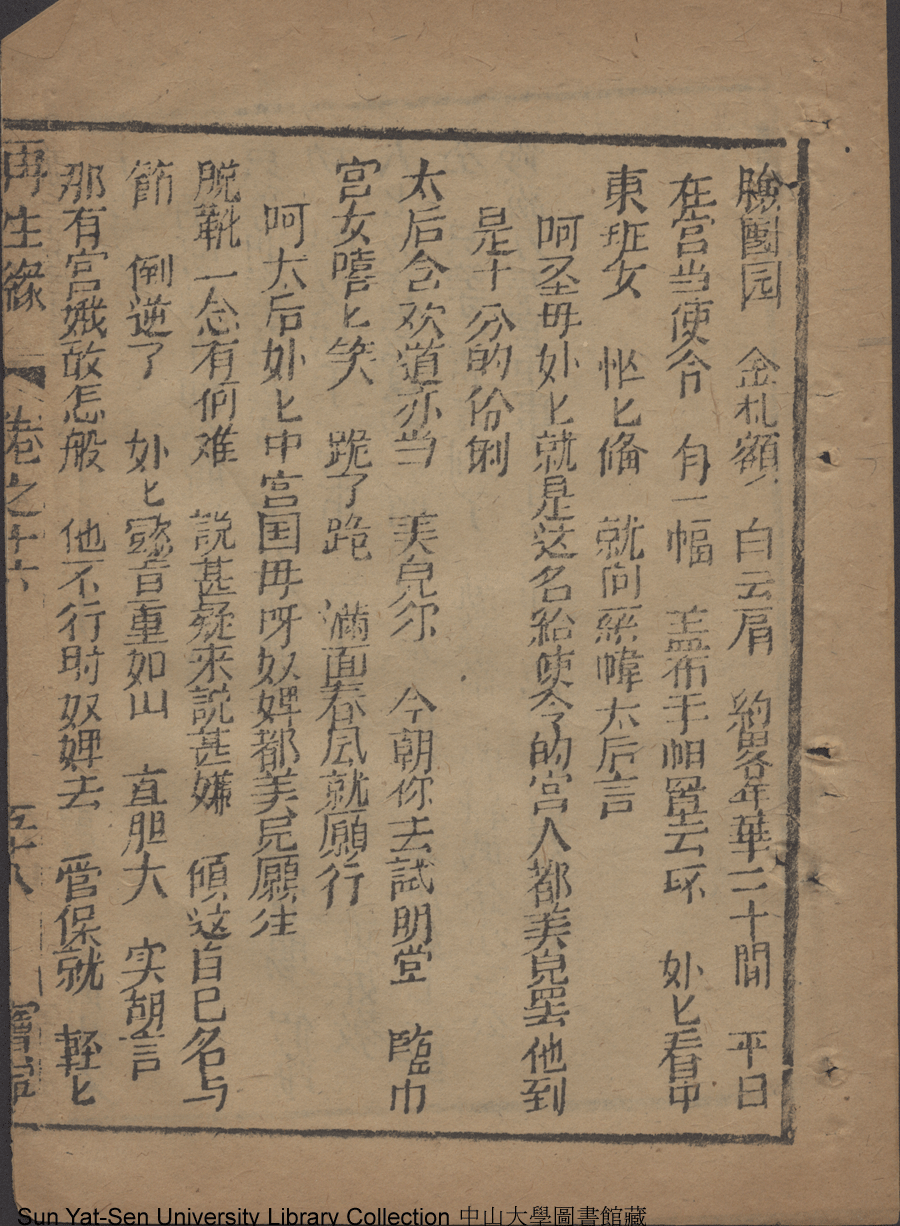 臉團园　金札額　白云肩　約畧年華二十間　平日
在宮当使令　有一幅　盖布手帕罢去环　妙匕看中
東班女　怪匕俻　就向羅幃太后言
呵圣毋妙匕就是这名給使令的宮人都美皃罢他到
是十分的伶俐
太后含欢道亦当　美皃尔　今朝你去試明堂　臨巾
宮女嘻匕笑　跪了跪　滿面春风就願行
呵太后妙匕中宮国毋呀奴婢都美皃願往
脱靴一念有何难　説甚疑来説甚嫌　傾这自已名与
節　倒逆了　妙匕懿音重如山　直胆大　实胡言
那有宮娥敢怎般　他不行时奴婢去　管保就　輕匕
再生緣　卷之十六　五十八　寳
Sun Yat-Sen University Library Collection 中山大學圖書館藏